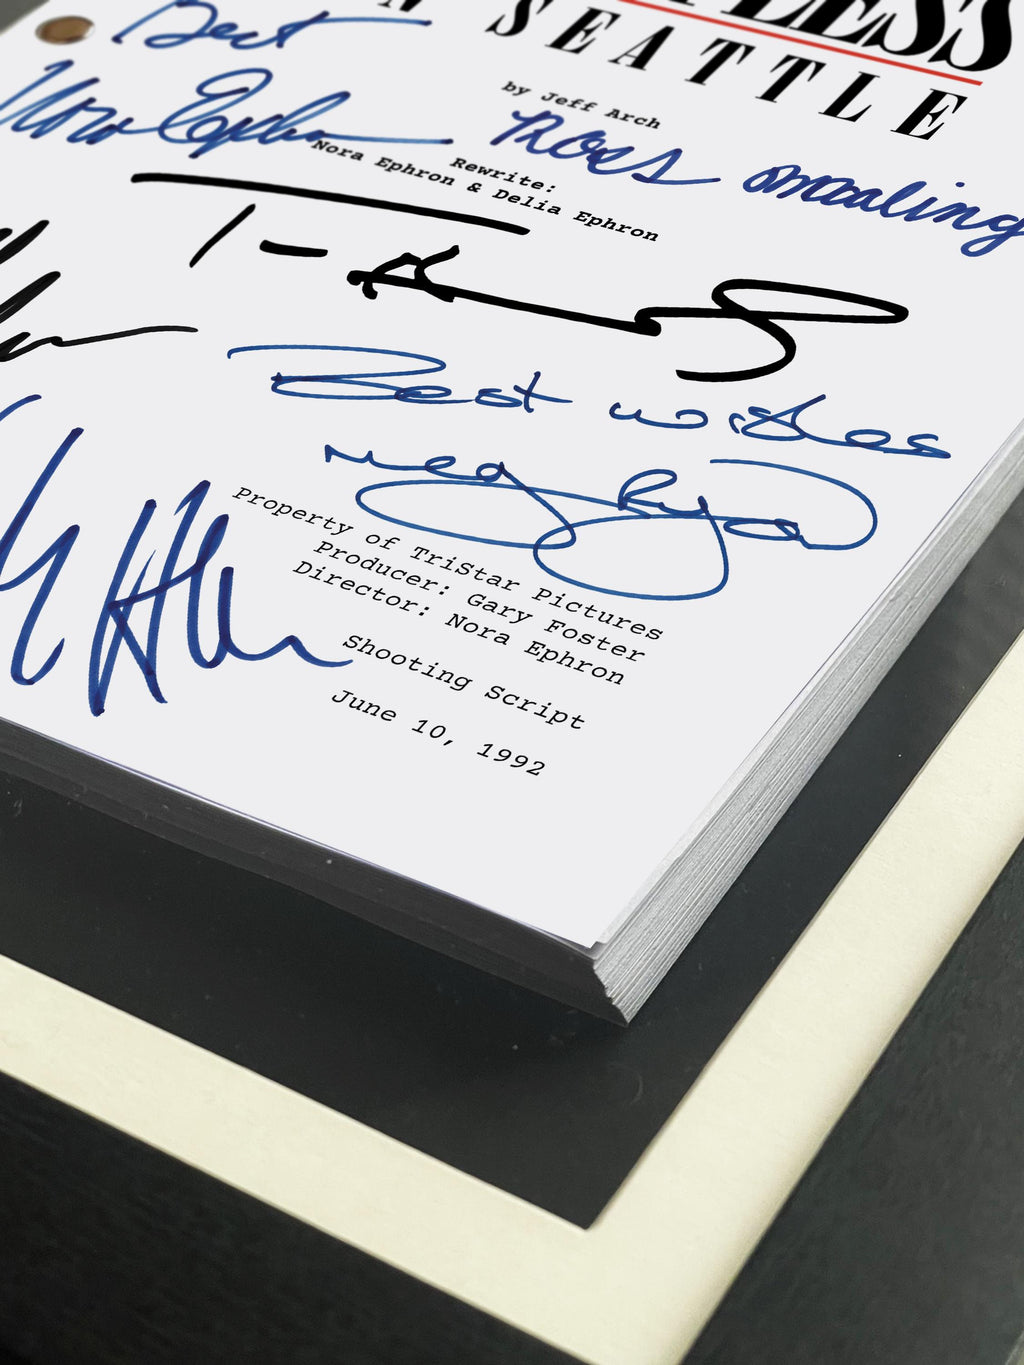 SEATTLE
by Jeff Arch
Best
Nora Ephron
Ross Malinger
Rewrite:
Nora Ephron & Delia Ephron
Best wishes
Meg Ryan
Property of TriStar Pictures
Producer: Gary Foster
Director: Nora Ephron
Shooting Script
June 10, 1992